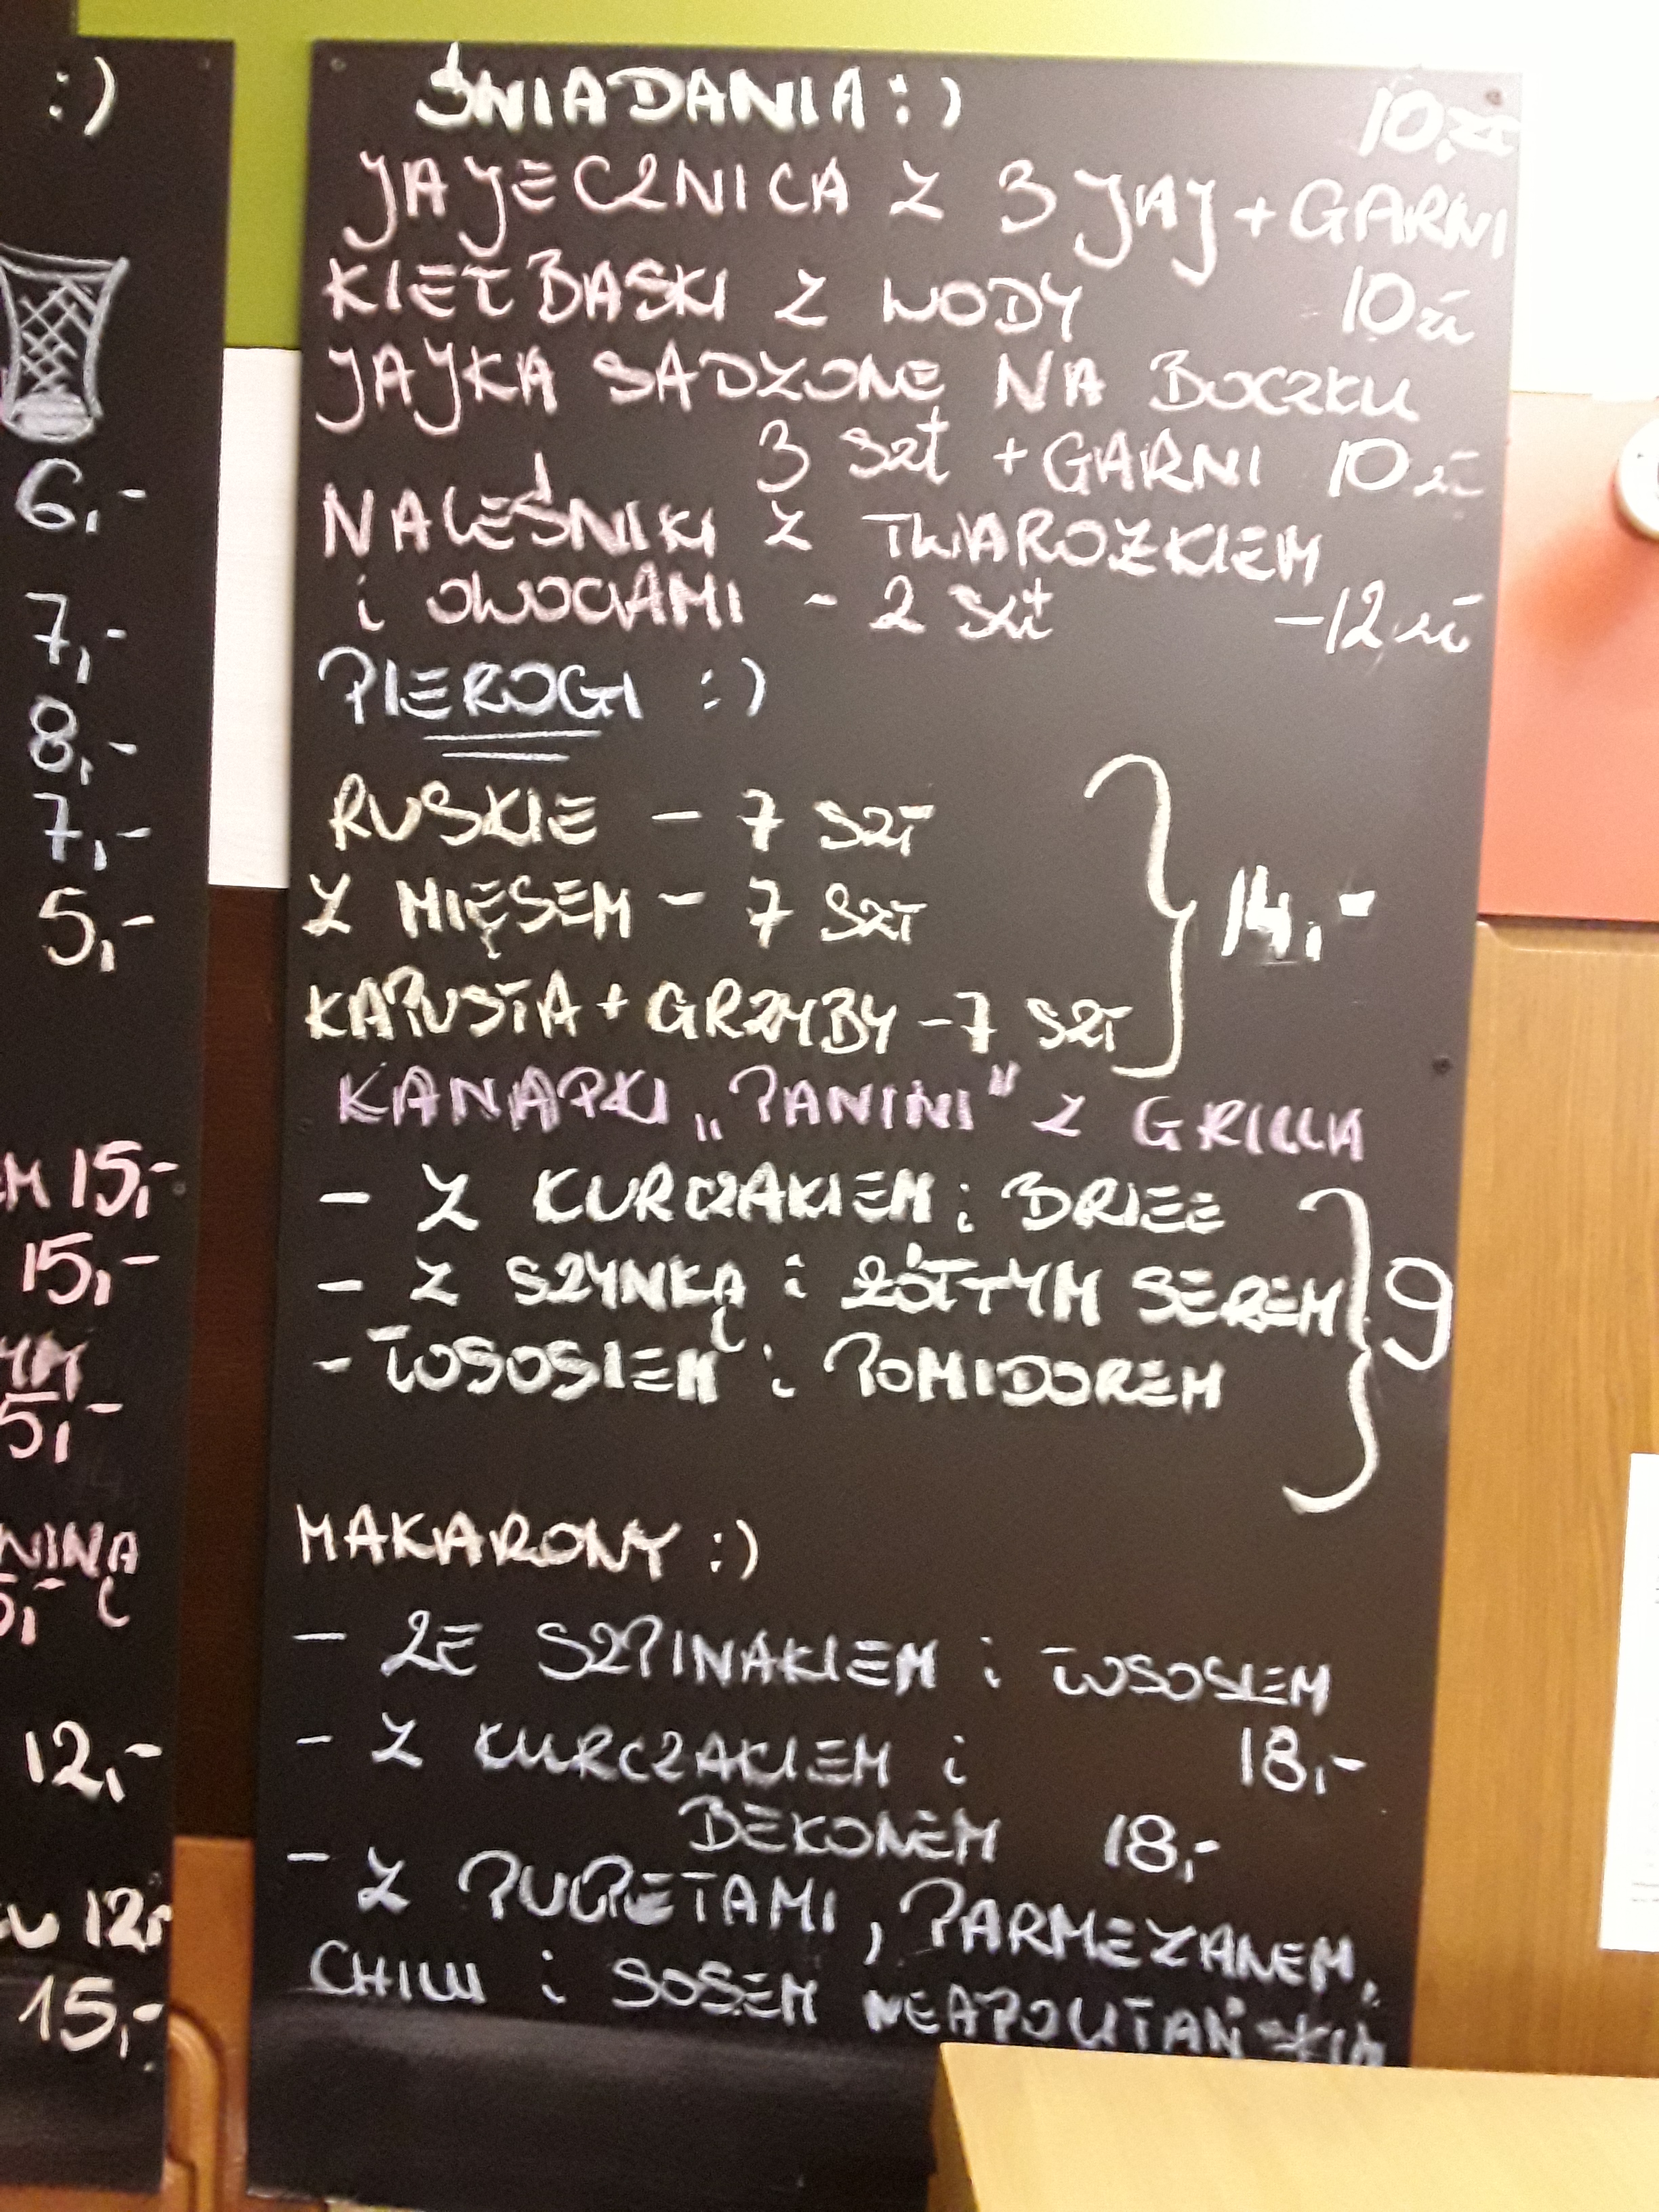 :)
6,-
7,-
8,-
7,-
5,-
15,-
15,-
5,-
12,-
12,-
15,-
ŚNIADANIA :) 10,zł
JAJECZNICA Z 3 JAJ + GARNI
KIEŁBASKI Z WODY 10 zł
JAJKA SADZONE NA BOCZKU
3 szt + GARNI 10 zł
NALEŚNIKI Z TWAROŻKIEM
i OWOCAMI - 2 szt -12 zł
PIEROGI :)
RUSKIE - 7 SZT
Z MIĘSEM - 7 SZT
14,-
KAPUSTA + GRZYBY - 7 SZT
KANAPKI „PANINI" Z GRILLA
- Z KURCZAKIEM i BRIEE
- Z SZYNKĄ i ŻÓŁTYM SEREM 9
- ŁOSOSIEM i POMIDOREM
MAKARONY :)
- ZE SZPINAKIEM i ŁOSOSIEM
- Z KURCZAKIEM i 18,-
BEKONEM 18,-
- Z PULPETAMI, PARMEZANEM,
CHILLI i SOSEM NEAPOLITAŃSKIM